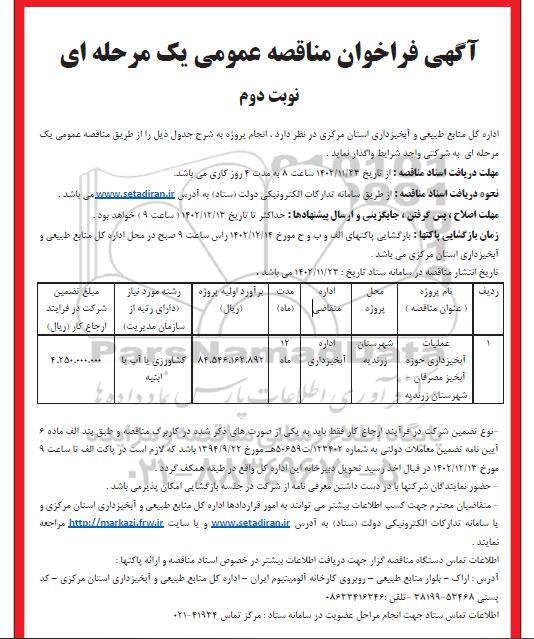 آگهی فراخوان مناقصه عمومی یک مرحله ای
نوبت دوم
اداره کل منابع طبیعی و آبخیزداری استان مرکزی در نظر دارد . انجام پروژه به شرح جدول ذیل را از طریق مناقصه عمومی یک
مرحله ای به شرکتی واجد شرایط واگذار نماید .
مهلت دریافت اسناد مناقصه : از تاریخ ۱۴۰۲/۱۱/۲۳ ساعت ۸ به مدت ۴ روز کاری می باشد.
نحوه دریافت اسناد مناقصه : از طریق سامانه تدارکات الکترونیکی دولت (ستاد) به آدرس www.setadiran.ir می باشد .
مهلت اصلاح ، پس گرفتن ، جایگزینی و ارسال پیشنهادها : حداکثر تا تاریخ ۱۴۰۲/۱۲/۱۳ ( ساعت ۹ ) خواهد بود .
زمان بازگشایی پاکتها : بازگشایی پاکتهای الف و ب و ج مورخ ۱۴۰۲/۱۲/۱۴ راس ساعت ۹ صبح در محل اداره کل منابع طبیعی و
آبخیزداری استان مرکزی می باشد .
تاریخ انتشار مناقصه در سامانه ستاد تاریخ : ۱۴۰۲/۱۱/۲۳ می باشد .
ردیف | نام پروژه ( عنوان مناقصه ) | محل پروژه | اداره متقاضی | مدت (ماه) | برآورد اولیه پروژه (ریال) | رشته مورد نیاز (دارای رتبه از سازمان مدیریت) | مبلغ تضمین شرکت در فرایند ارجاع کار (ریال)
۱ | عملیات آبخیزداری حوزه آبخیز مصرقان شهرستان زرندیه | شهرستان زرندیه | اداره آبخیزداری | ۱۲ ماه | ۸۴،۵۴۶،۱۶۲،۸۹۲ | کشاورزی یا آب یا ابنیه | ۴،۲۵۰،۰۰۰،۰۰۰
-نوع تضمین شرکت در فرآیند ارجاع کار فقط باید به یکی از صورت های ذکر شده در کاربرگ مناقصه و طبق بند الف ماده ۶
آیین نامه تضمین معاملات دولتی به شماره ۱۲۳۴۰۲/ت۵۰۶۵۹هـ مورخ ۱۳۹۴/۹/۲۲ باشد که لازم است در پاکت الف تا ساعت ۹
مورخ ۱۴۰۲/۱۲/۱۳ در قبال اخذ رسید تحویل دبیرخانه این اداره کل واقع در طبقه همکف گردد .
- حضور نمایندگان شرکتها با در دست داشتن معرفی نامه از شرکت در جلسه بازگشایی امکان پذیرمی باشد .
- متقاضیان محترم جهت کسب اطلاعات بیشتر می توانند به امور قراردادها اداره کل منابع طبیعی و آبخیزداری استان مرکزی و
یا سامانه تدارکات الکترونیکی دولت (ستاد) به آدرس www.setadiran.ir و یا سایت http://markazi.frw.ir مراجعه
نمایند .
اطلاعات تماس دستگاه مناقصه گزار جهت دریافت اطلاعات بیشتر در خصوص اسناد مناقصه و ارائه پاکتها :
آدرس : اراک - بلوار منابع طبیعی - روبروی کارخانه آلومینیوم ایران - اداره کل منابع طبیعی و آبخیزداری استان مرکزی - کد
پستی ۵۳۴۶۸-۳۸۱۹۹ -تلفن: ۰۸۶۳۳۴۱۶۳۴۶
اطلاعات تماس ستاد جهت انجام مراحل عضویت در سامانه ستاد : مرکز تماس ۴۱۹۳۴-۰۲۱